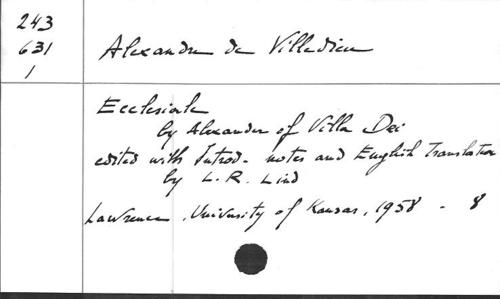 243
631
1
Alexandre de Villedieu
Ecclesiale
by Alexander of Villa Dei
edited with Introd. notes and English Translation
by L. R. Lind
Lawrence, University of Kansas, 1958 - 8